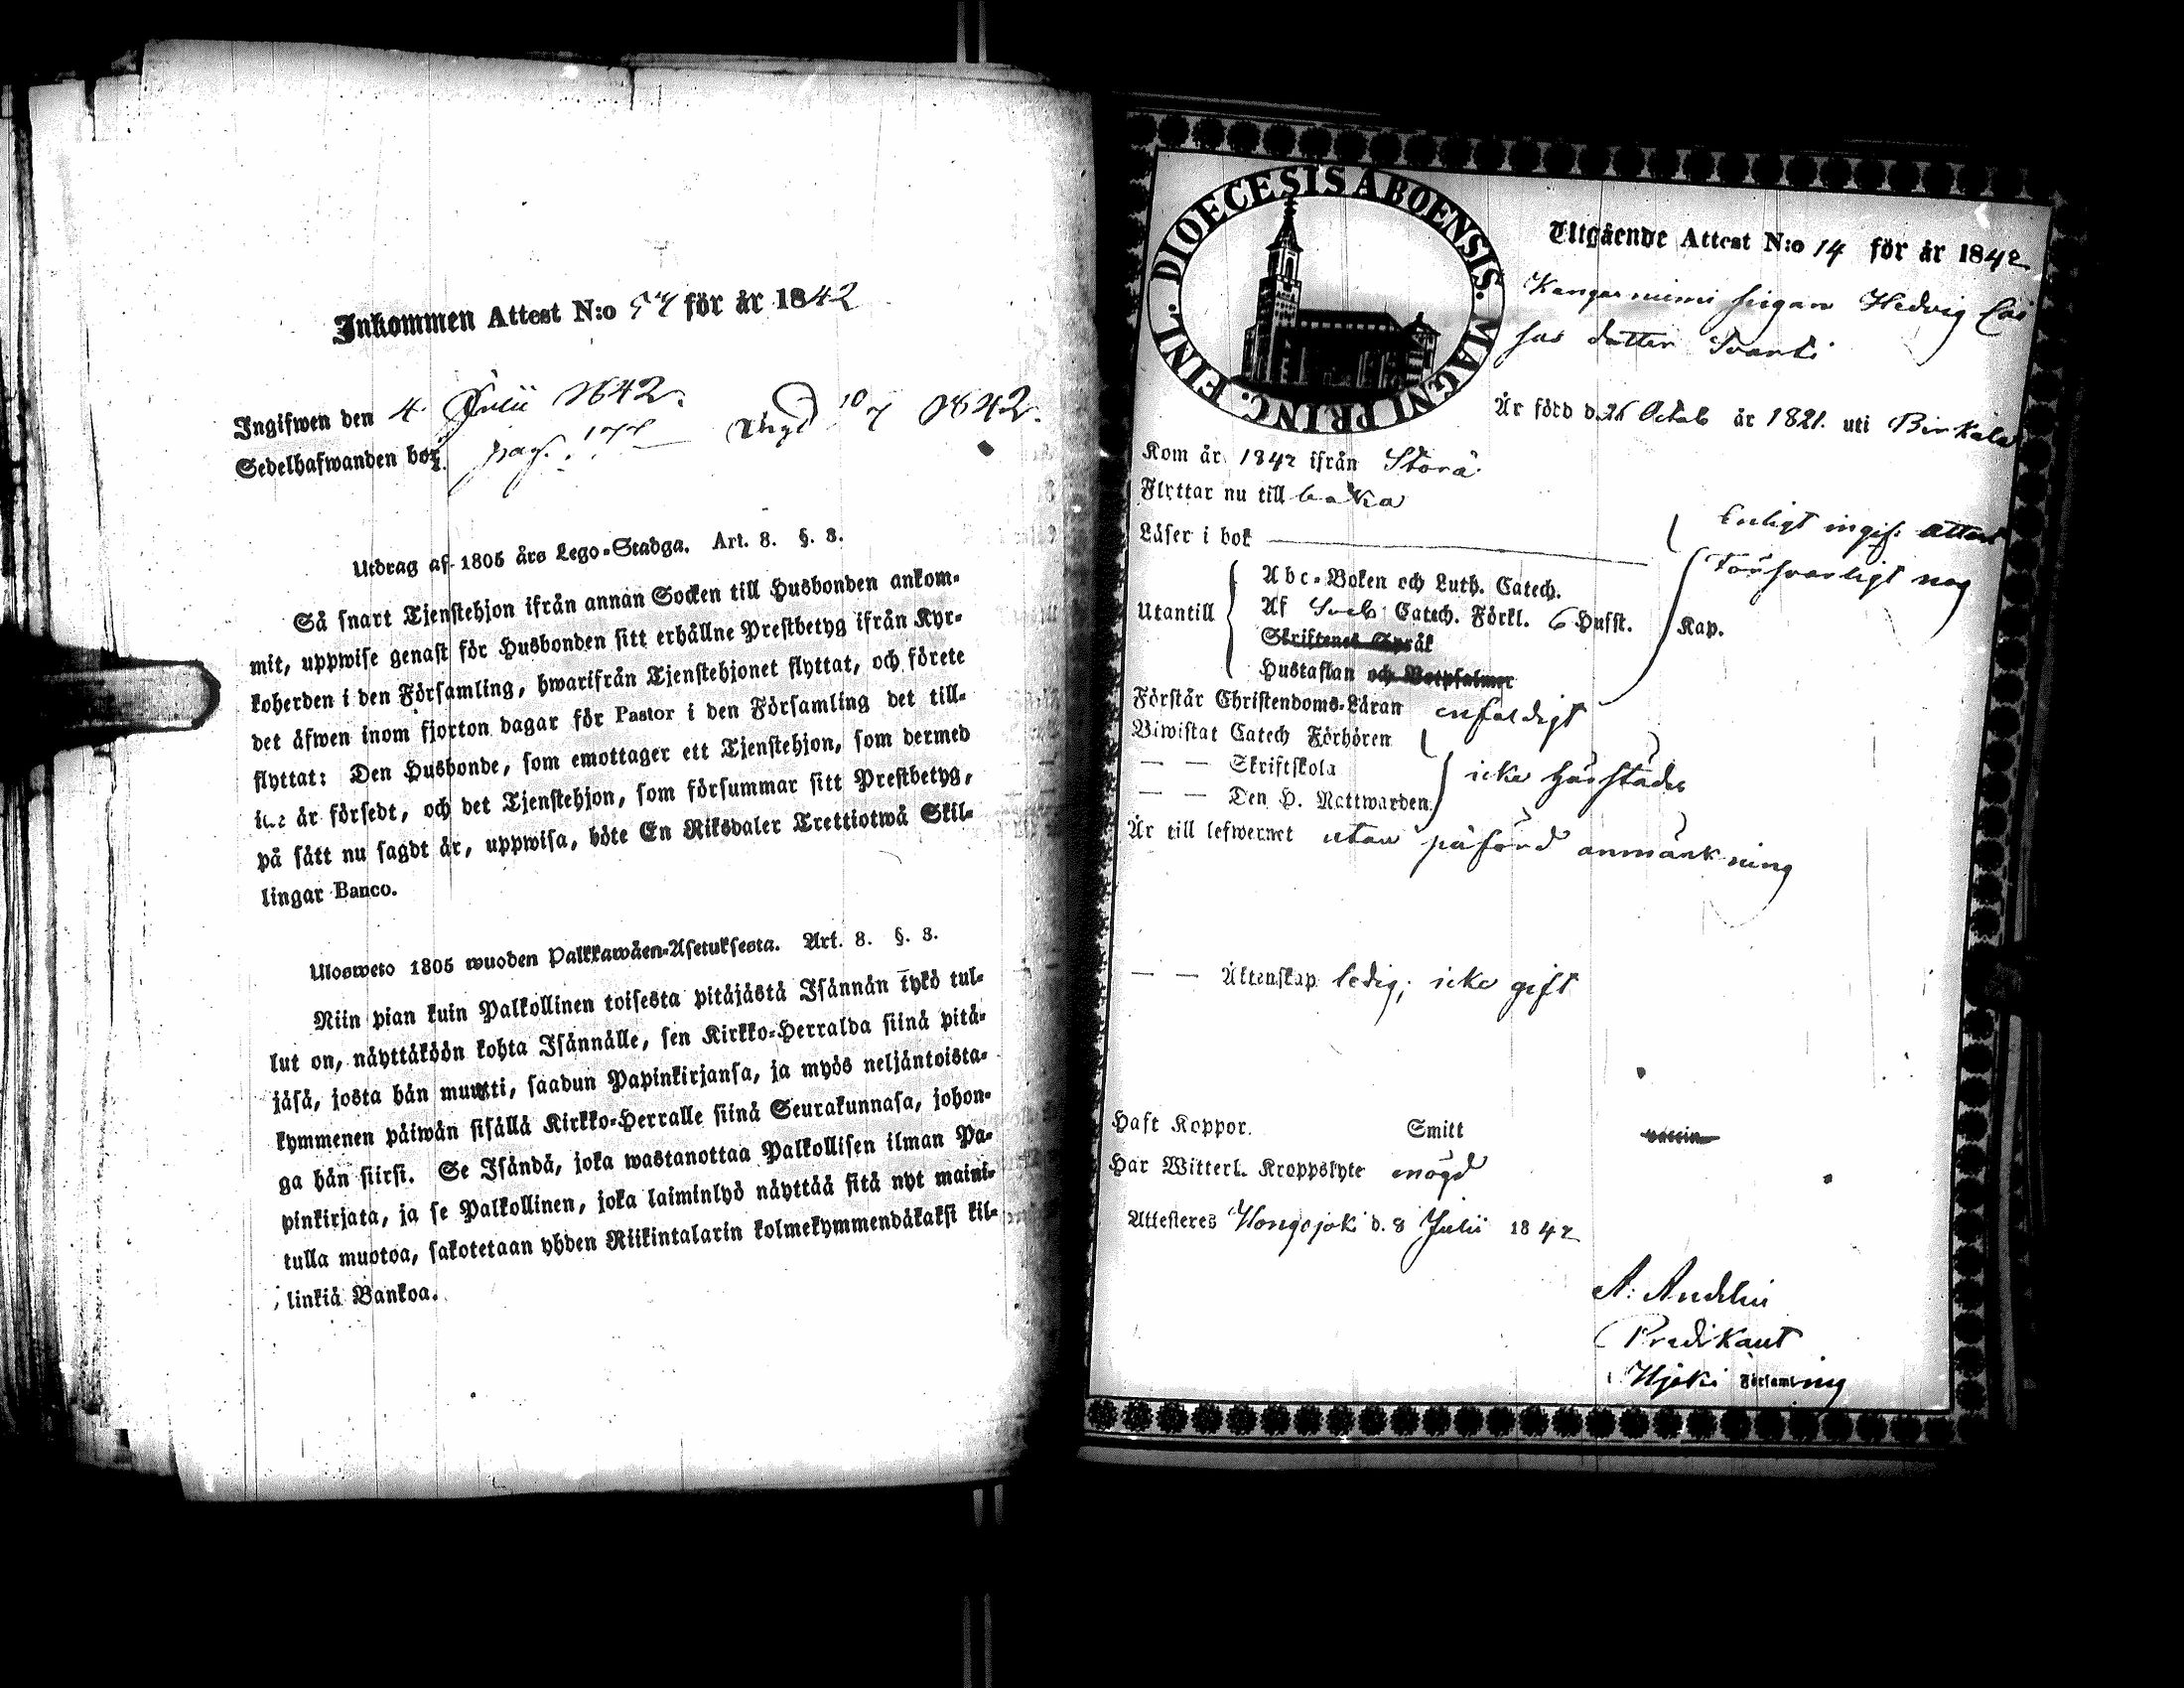 Inkommen Attest N:o 57 för år 1842
Ingifwen den 4 Julii 1842.
Sedelhafwanden bor pag. 10/7 1842.
Utdrag af 1805 års Lego-Stadga. Art. 8. §. 3.
Så snart Tjenstehjon ifrån annan Socken till Husbonden ankom-
mit, uppwise genast för Husbonden sitt erhållne Prestbetyg ifrån Kyr-
koherden i den Församling, hwarifrån Tjenstehjonet flyttat, och förete
det äfwen inom fjorton dagar för Pastor i den Församling det till-
flyttat: Den Husbonde, som emottager ett Tjenstehjon, som dermed
icke är försedt, och det Tjenstehjon, som försummar sitt Prestbetyg,
på sätt nu sagdt är, uppwisa, böte En Riksdaler Trettiotwå Skil-
lingar Banco.
Ulosweto 1805 wuoden Palkkawäen-Asetuksesta. Art. 8. §. 3.
Niin pian kuin Palkollinen toisesta pitäjästä Isännän tykö tul-
lut on, näyttäköön kohta Isännälle, sen Kirkko-Herralda siinä pitä-
jäsä, josta hän muutti, saadun Papinkirjansa, ja myös neljäntoista-
kymmenen päiwän sisällä Kirkko-Herralle siinä Seurakunnasa, johon-
ga hän siirsi. Se Isändä, joka wastanottaa Palkollisen ilman Pa-
pinkirjata, ja se Palkollinen, joka laiminlyö näyttää sitä nyt maini-
tulla muotoa, sakotetaan yhden Riikintalarin kolmekymmendäkaksi kil-
linkiä Bankoa.
DIOECESIS ABOENSIS. MAGNI PRINC. FINL.
Utgående Attest N:o 14 för år 1842
Kangasniemi pigan Hedvig
dotter
Är född d. 26 Octob år 1821. uti Birkala
Kom år 1842 ifrån Storå
Flyttar nu till baka
Läser i bok
Enligt ingif. attest
Försvarligt nog
Utantill
Abc-Boken och Luth. Catech.
Af Sveb Catech. Förkl. 6 Hufst. Kap.
Skriftenes Språk
Hustaflan och Botpsalmer
Förstår Christendoms-Läran enfaldigt
Biwistat Catech Förhören
— — Skriftskola icke härstädes
— — Den H. Nattwarden
Är till lefwernet utan påförd anmärkning
— — Äktenskap ledig; icke gift
Haft Koppor. Smitt vaccin
Har Witterl. Kroppslyte
Attesteras Hongojoki d. 8 Julii 1842
A. Andelin
Predikant
i Hjoki Församling